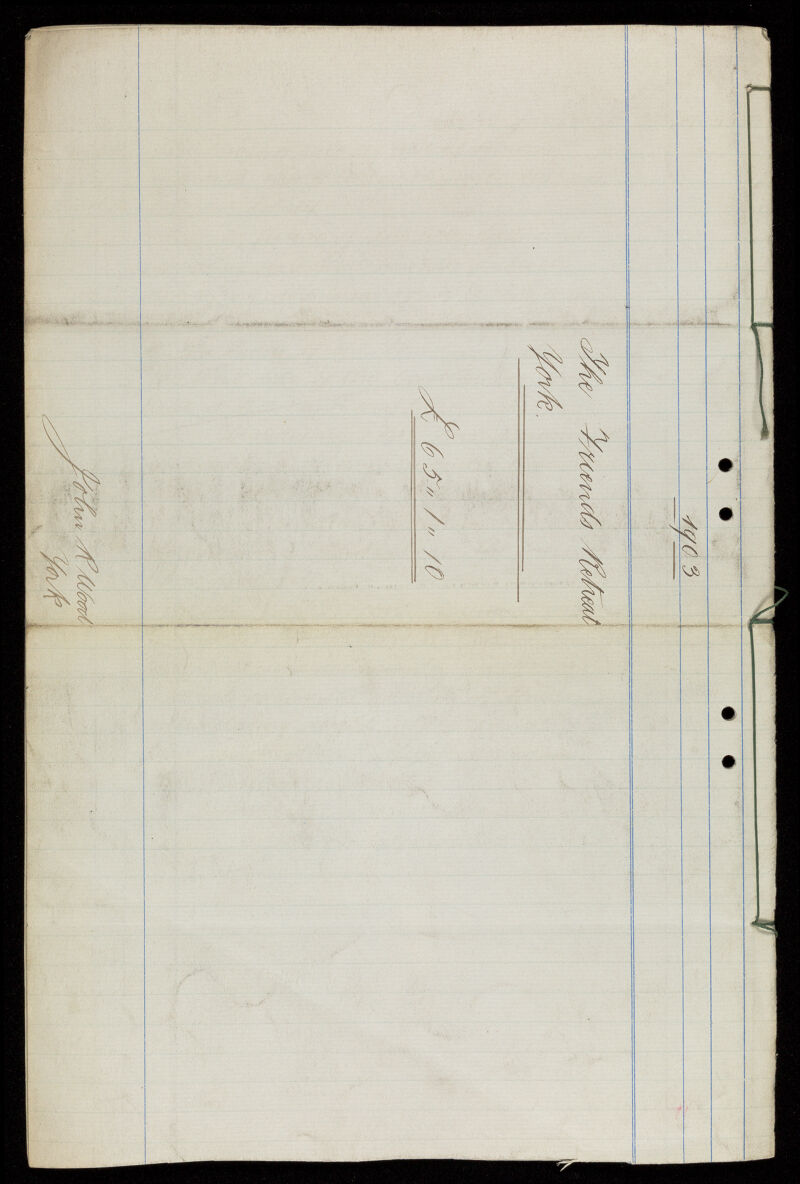 1903
The Friends Retreat
York.
£ 65 " 1 " 10
John R Wood
York